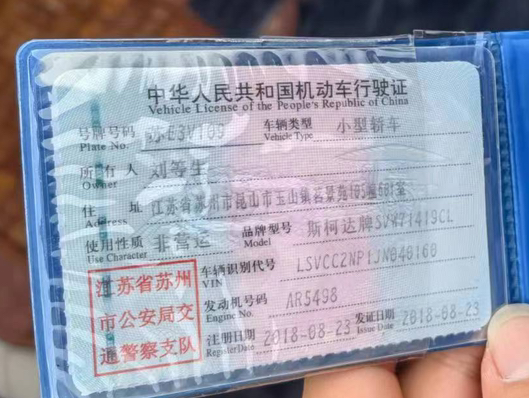 中华人民共和国机动车行驶证
Vehicle License of the People's Republic of China
号牌号码 苏E3V109 车辆类型 小型轿车
Plate No. Vehicle Type
所有人 刘等生
Owner
住址 江苏省苏州市昆山市玉山镇茗景苑105幢601室
Address
使用性质 非营运 品牌型号 斯柯达牌SVW71419CL
Use Character Model
车辆识别代号 LSVCC2NP1JN040160
VIN
发动机号码 AR5498
Engine No.
注册日期 2018-08-23 发证日期 2018-08-23
Register Date Issue Date
江苏省苏州
市公安局交
通警察支队